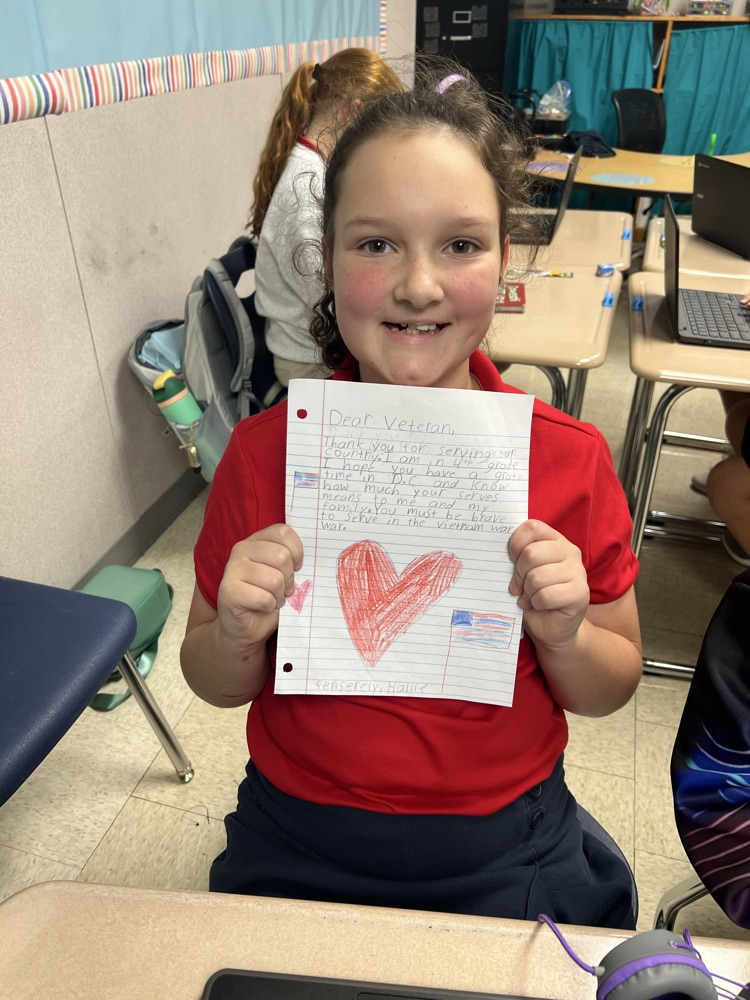 Dear Veteran,
Thank you for serving our
country. I am in 4th grade
I hope you have a grate
time in D.C and know
how much your serves
means to me and my
family. you must be brave
to serve in the vietnam war
war.
senserely, Hallie